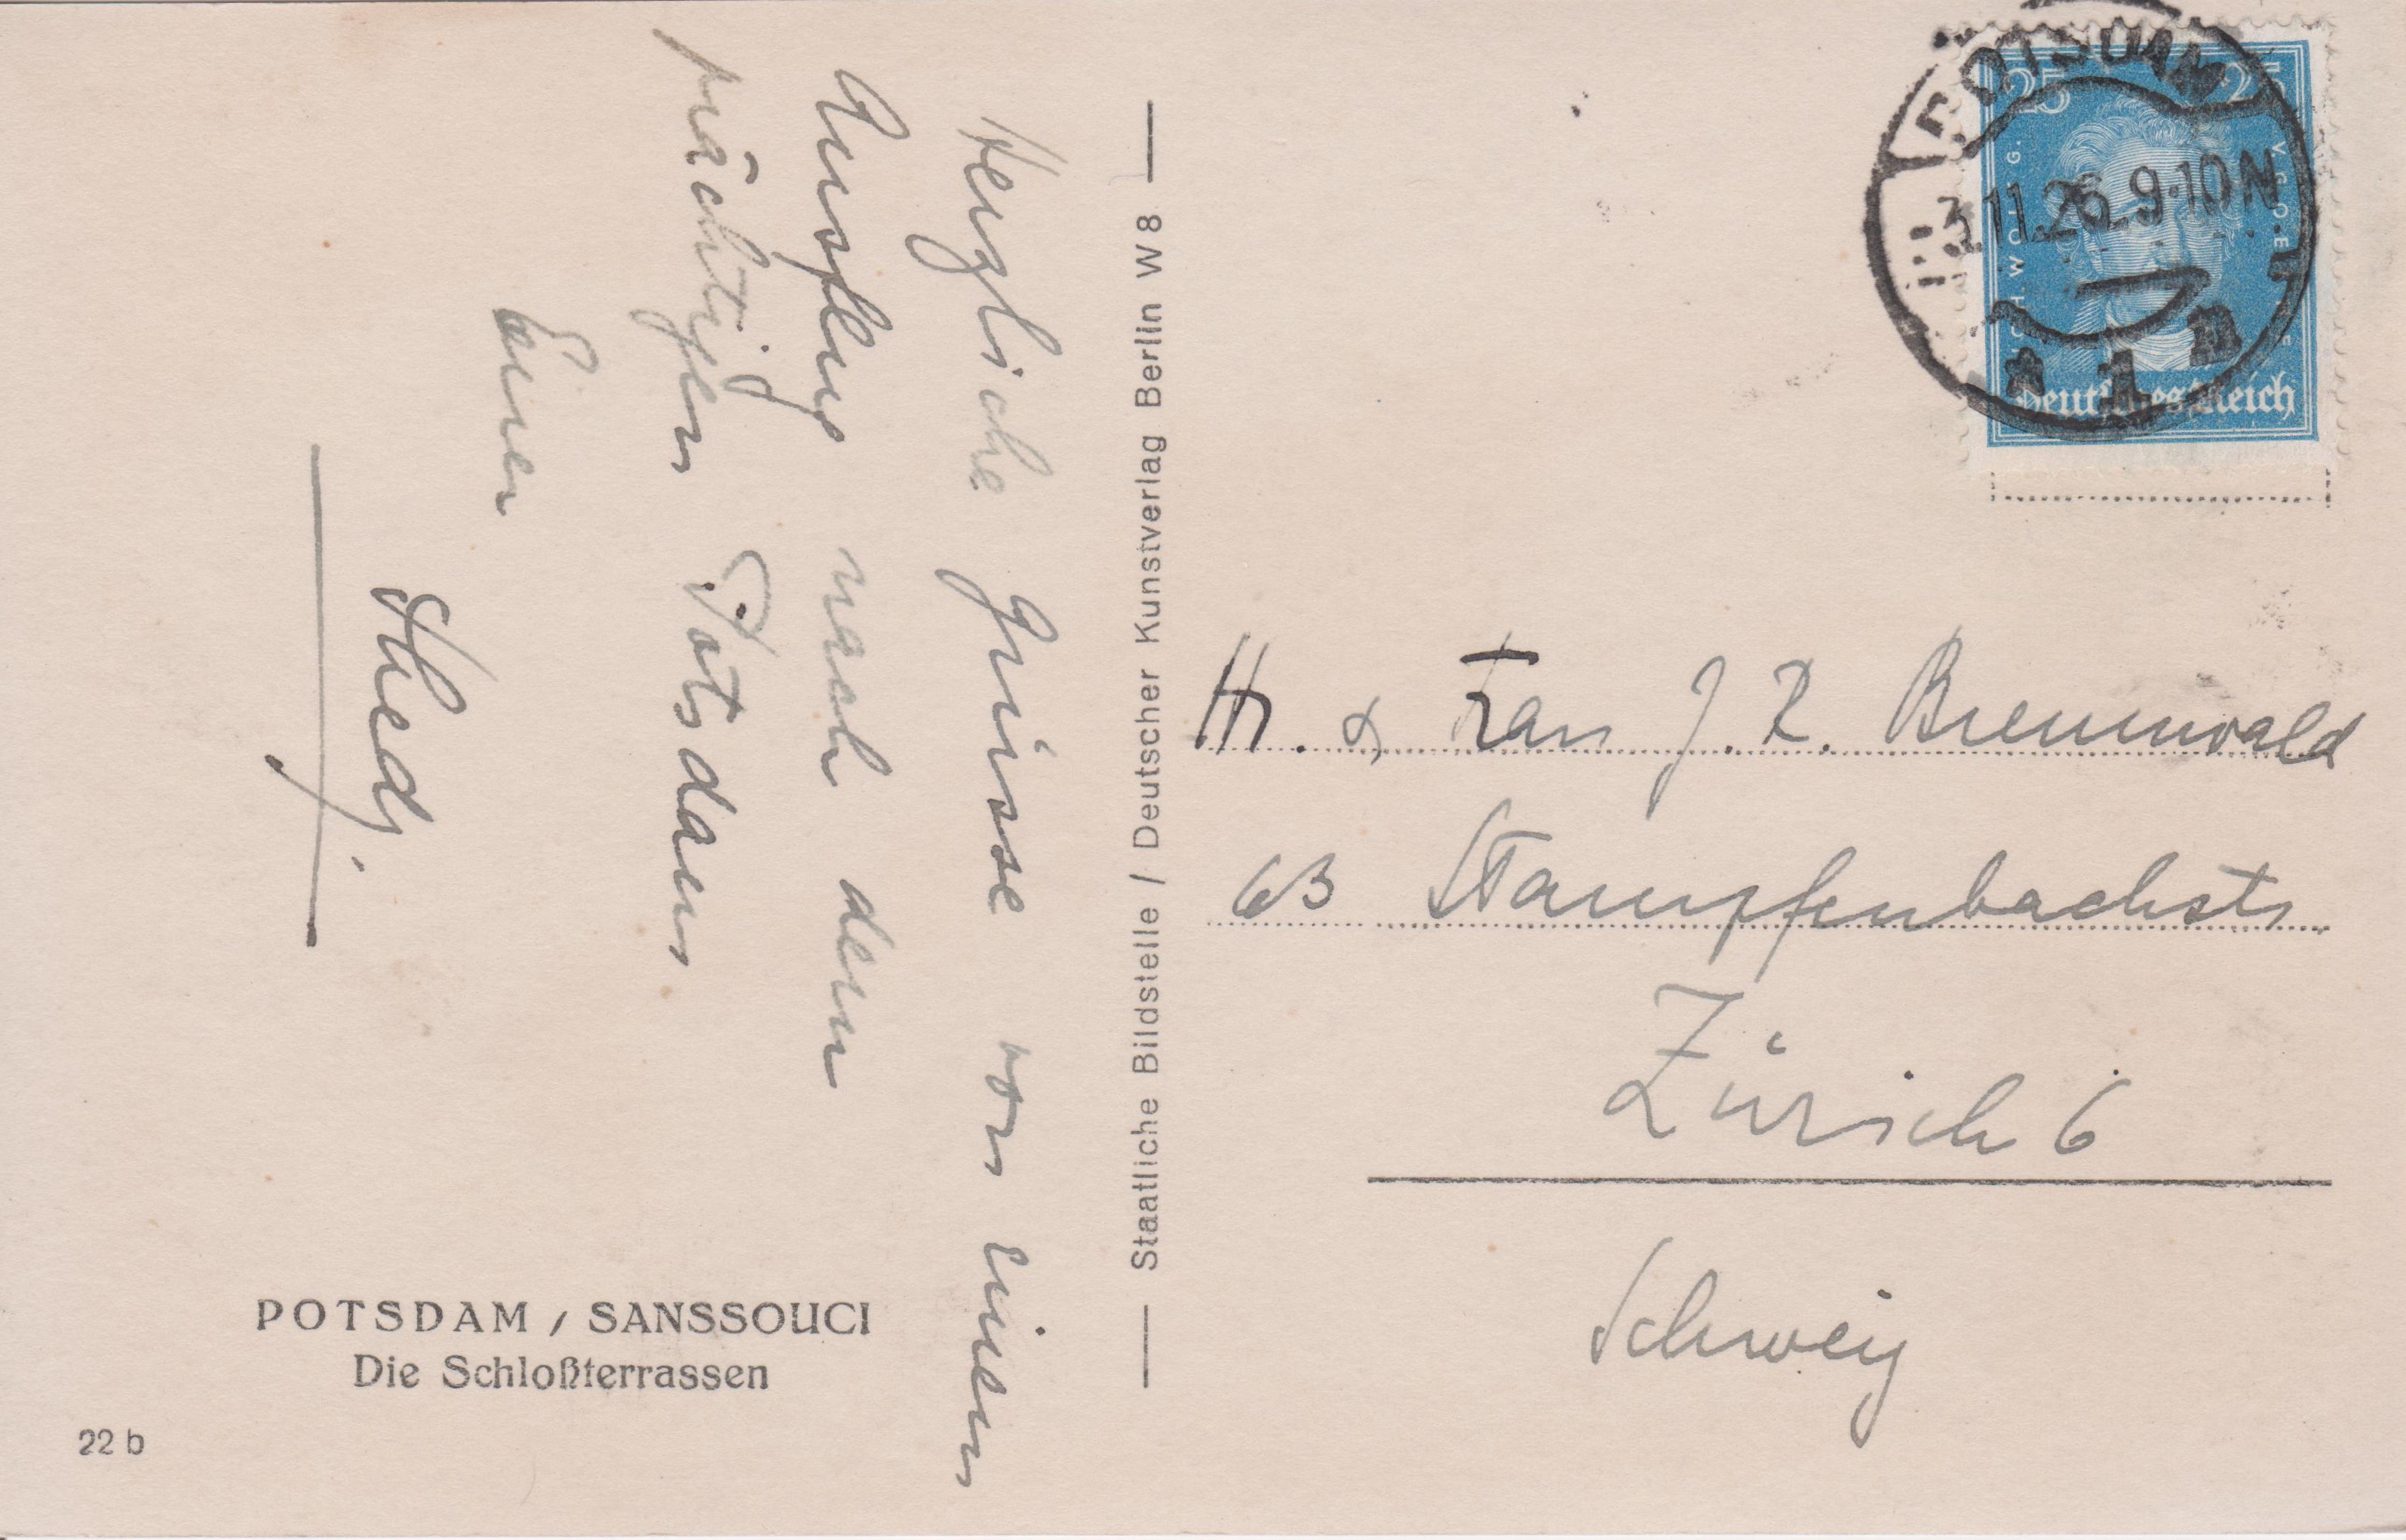 Herzliche Grüsse von einem
Ausflug nach dem
prächtigen Potsdam
Euer
Hedy.
POTSDAM / SANSSOUCI
Die Schloßterrassen
22 b
Staatliche Bildstelle / Deutscher Kunstverlag Berlin W 8
25 25
JOH. WOLFG. V. GOETHE
Deutsches Reich
POTSDAM
3.11.26. 9-10 N
* 1 n
Hr. & Frau J. R. Brennwald
63 Stampfenbachstr.
Zürich 6
Schweiz